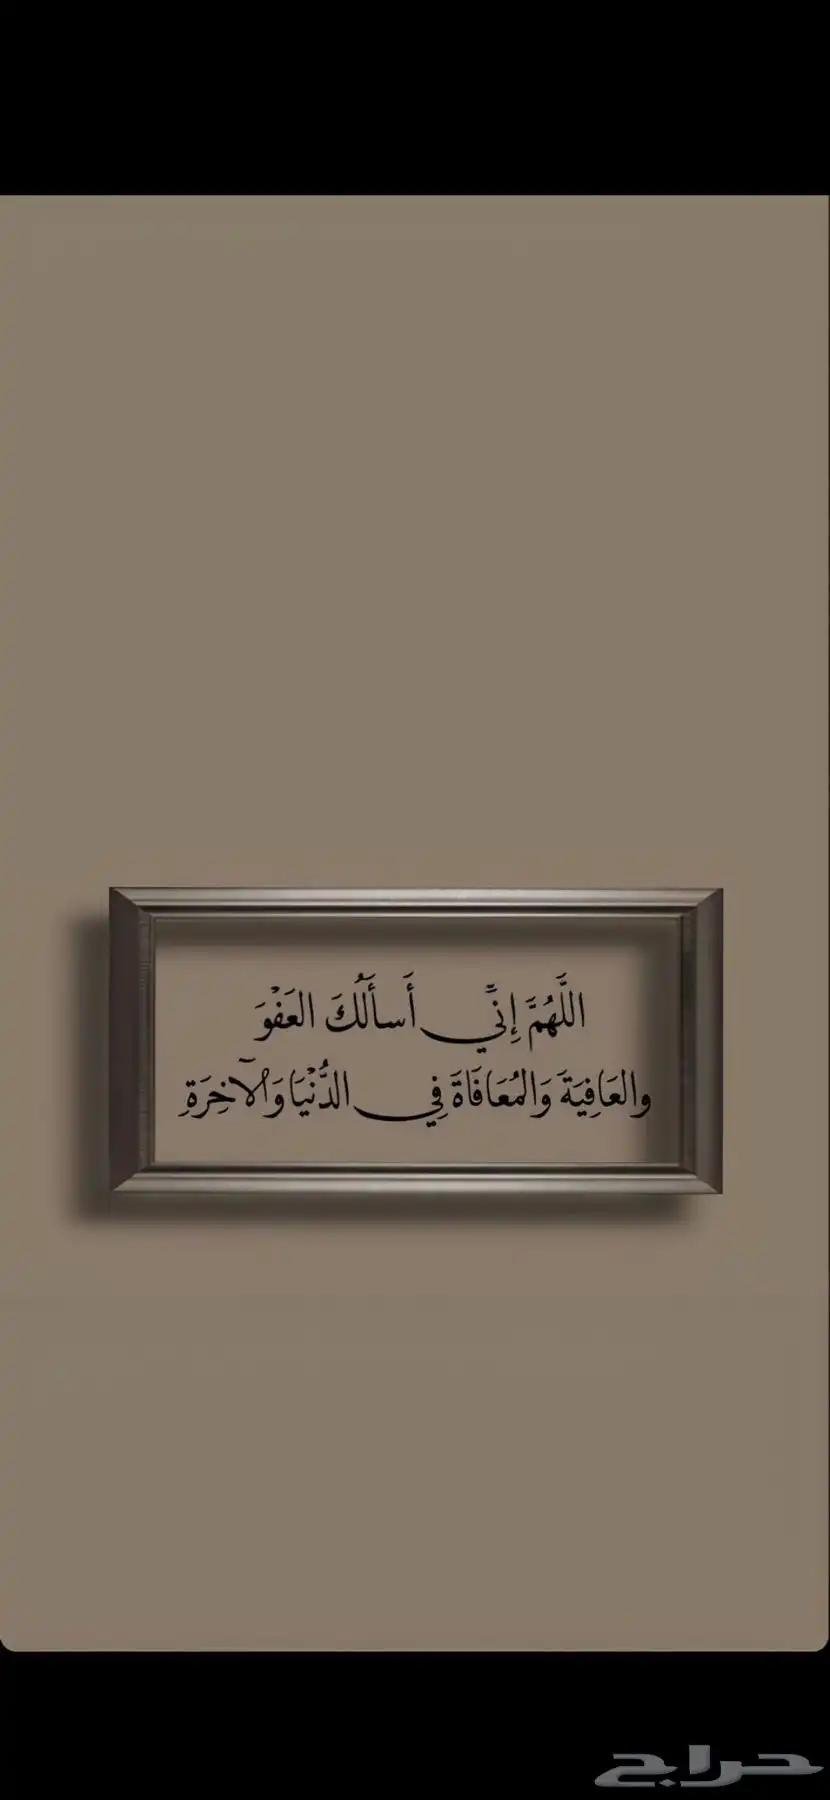 اللَّهُمَّ إِنِّي أَسأَلُكَ العَفْوَ
والعَافِيَةَ وَالمُعَافَاةَ فِي الدُّنْيَا وَالآخِرَةِ
حراج